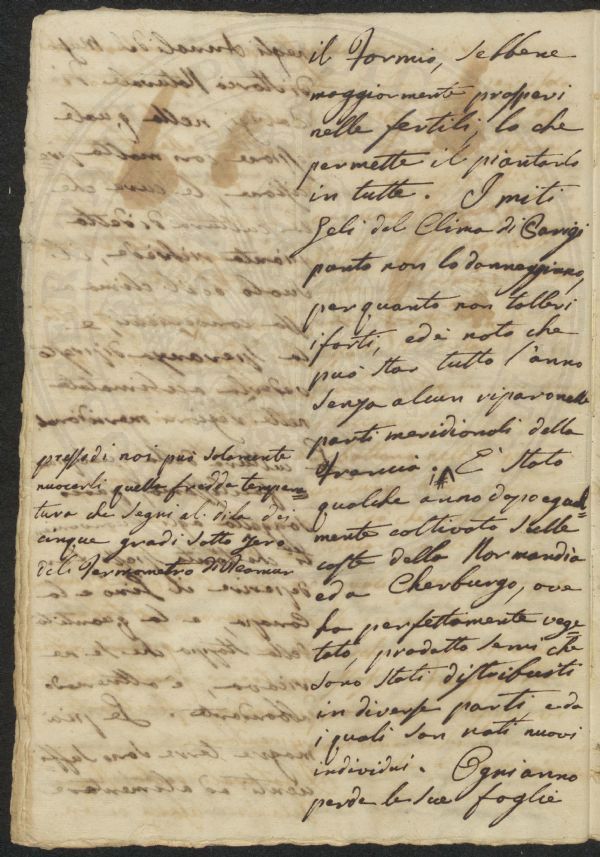 il Formio, sebbene
maggiormente prosperi
nelle fertili, lo che
permette il piantarlo
in tutte. I miti
Geli del Clima di Parigi
punto non lo danneggiano,
per quanto non tolleri
i forti, ed è noto che
può star tutto l'anno
senza alcun riparo nelle
parti meridionali della
Francia. È stato
qualche anno dopo egual=
mente coltivato sulle
coste della Normandia
ed a Cherburgo, ove
ha perfettamente vege=
tato, prodotto semi che
sono stati distribuiti
in diverse parti e da
i quali son nati nuovi
individui. Ogni anno
perde le sue foglie
presso di noi può solamente
nuocerli quella fredda tempera=
tura che segni al di là dei
cinque gradi sotto zero
del Termometro di Reamur